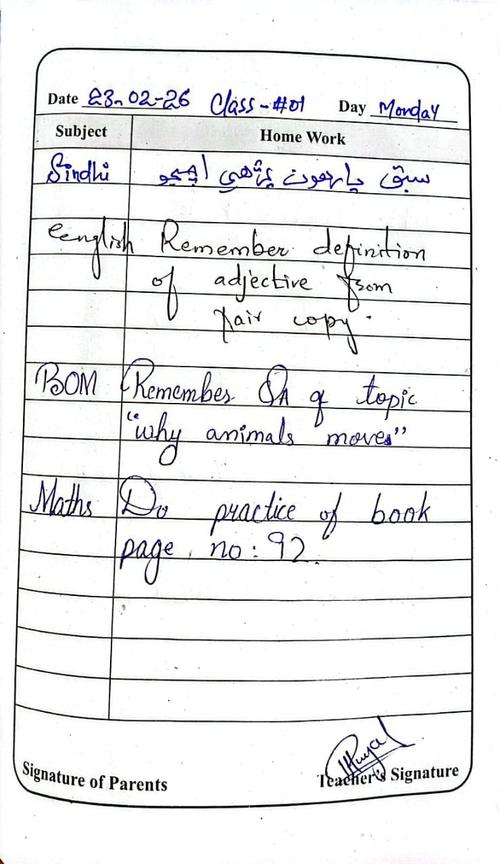 Date 23-02-26 Class-#01 Day Monday
Subject Home Work
Sindhi سبق يارهون پڙهي اچجو
English Remember definition
of adjective from
fair copy.
BOM Remember QA of topic
"why animals moves"
Maths Do practice of book
page no: 92.
Signature of Parents Teacher's Signature